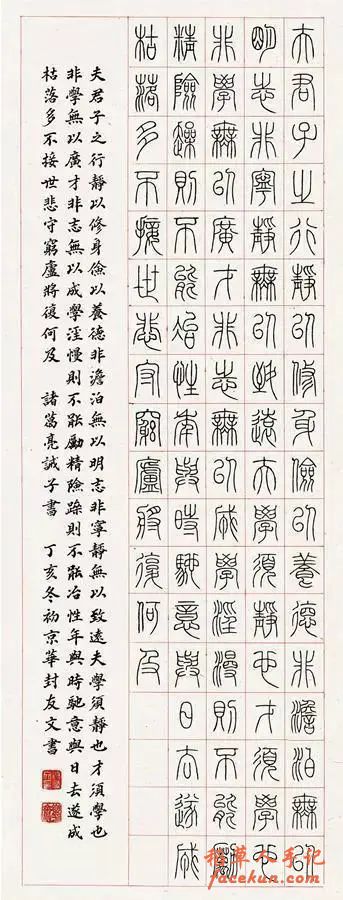 夫君子之行靜以修身儉以養德非澹泊無以
明志非寧靜無以致遠夫學須靜也才須學也
非學無以廣才非志無以成學淫漫則不能勵
精險躁則不能冶性年與時馳意與日去遂成
枯落多不接世悲守窮廬將復何及
夫君子之行靜以修身儉以養德非澹泊無以明志非寧靜無以致遠夫學須靜也才須學也
非學無以廣才非志無以成學淫慢則不能勵精險躁則不能冶性年與時馳意與日去遂成
枯落多不接世悲守窮廬將復何及 諸葛亮誡子書 丁亥冬初京華封友文書
稻草人手记
jacekun.com